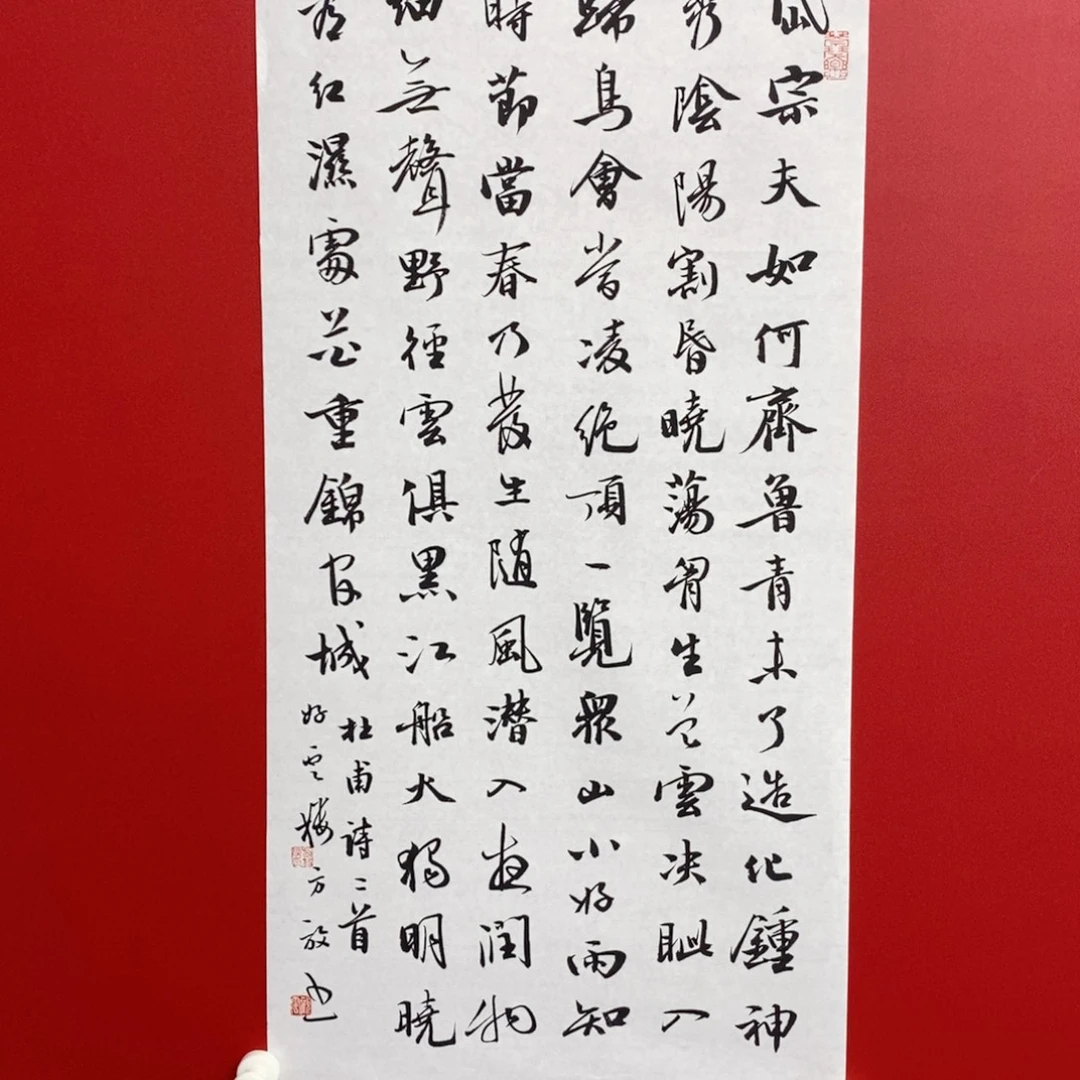 岱宗夫如何齊魯青未了造化鍾神
秀陰陽割昏曉蕩胷生曾雲决眦入
歸鳥會當凌絶頂一覽衆山小好雨知
時節當春乃發生随風潜入夜潤物
細無聲野徑雲俱黑江船火獨明曉
看紅濕處花重錦官城
杜甫詩二首
好雲樓方放書